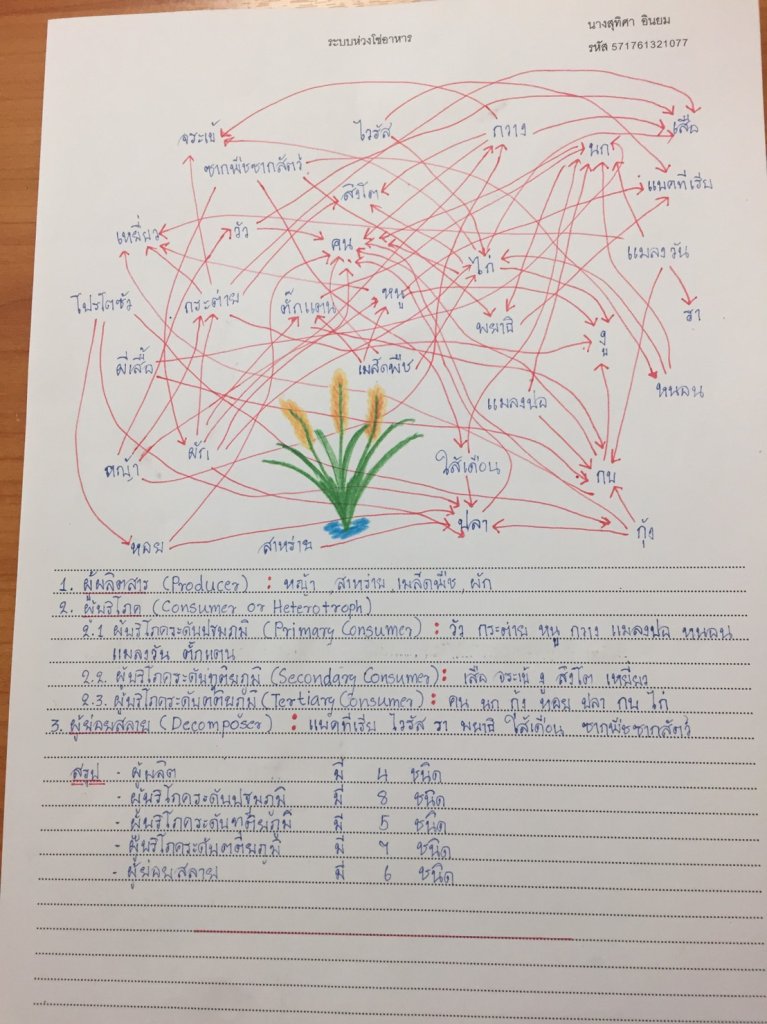 นางสุทิศา อินยม
ระบบห่วงโซ่อาหาร
รหัส 571761321077
จระเข้ ไวรัส กวาง เสือ
ซากพืชซากสัตว์ นก
สิงโต แบคทีเรีย
เหยี่ยว วัว คน แมลงวัน
ไก่
โปรโตซัว กระต่าย ตั๊กแตน หนู พยาธิ รา
งู
ผีเสื้อ เมล็ดพืช หนอน
แมลงปอ
หญ้า ผัก ไส้เดือน กบ
หอย สาหร่าย ปลา กุ้ง
1. ผู้ผลิตสาร (Producer) : หญ้า สาหร่าย เมล็ดพืช ผัก
2. ผู้บริโภค (Consumer or Heterotroph)
2.1 ผู้บริโภคระดับปฐมภูมิ (Primary Consumer) : วัว กระต่าย หนู กวาง แมลงปอ หนอน
แมลงวัน ตั๊กแตน
2.2. ผู้บริโภคระดับทุติยภูมิ (Secondary Consumer) : เสือ จระเข้ งู สิงโต เหยี่ยว
2.3. ผู้บริโภคระดับตติยภูมิ (Tertiary Consumer) : คน นก กุ้ง หอย ปลา กบ ไก่
3. ผู้ย่อยสลาย (Decomposer) : แบคทีเรีย ไวรัส รา พยาธิ ไส้เดือน ซากพืชซากสัตว์
สรุป - ผู้ผลิต มี 4 ชนิด
- ผู้บริโภคระดับปฐมภูมิ มี 8 ชนิด
- ผู้บริโภคระดับทุติยภูมิ มี 5 ชนิด
- ผู้บริโภคระดับตติยภูมิ มี 7 ชนิด
- ผู้ย่อยสลาย มี 6 ชนิด